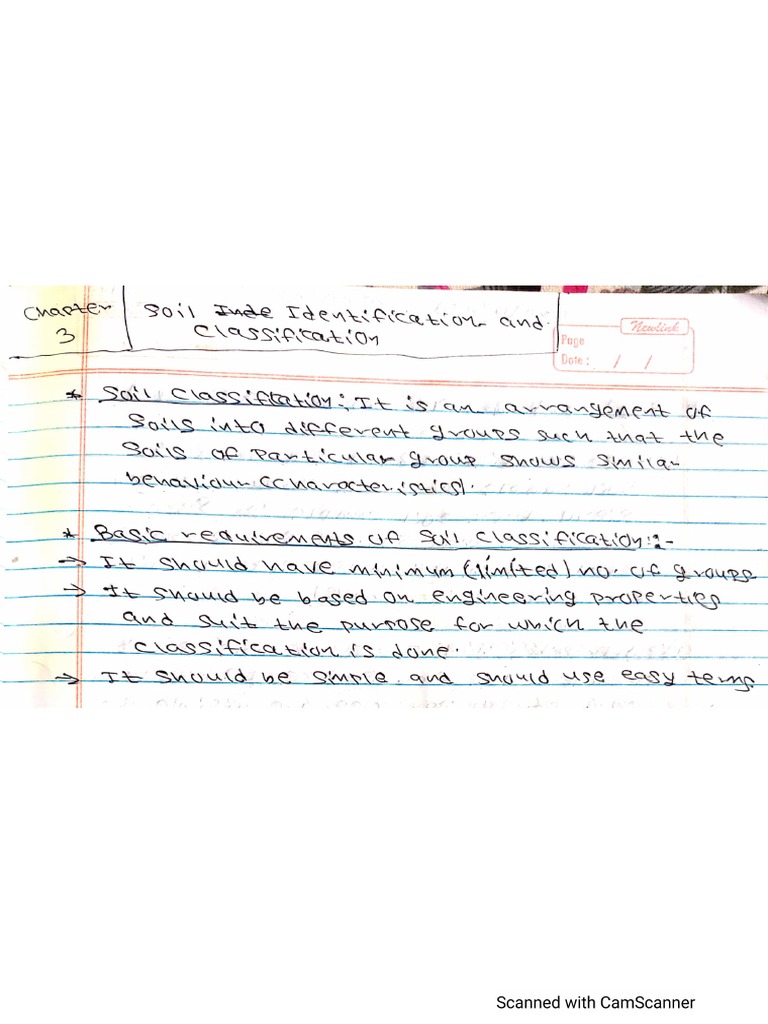 Chapter
3
Soil Inde Identification and
Classification
Newlink
Page
Date: / /
* Soil Classifitation: It is an arrangement of
Soils into different groups such that the
Soils of Particular group shows similar
behaviour (Characteristics).
* Basic requirements of Soil Classification:-
→ It should have minimum (limited) no. of groups
→ It should be based on engineering properties
and suit the purpose for which the
classification is done.
→ It should be simple and should use easy terms.
Scanned with CamScanner